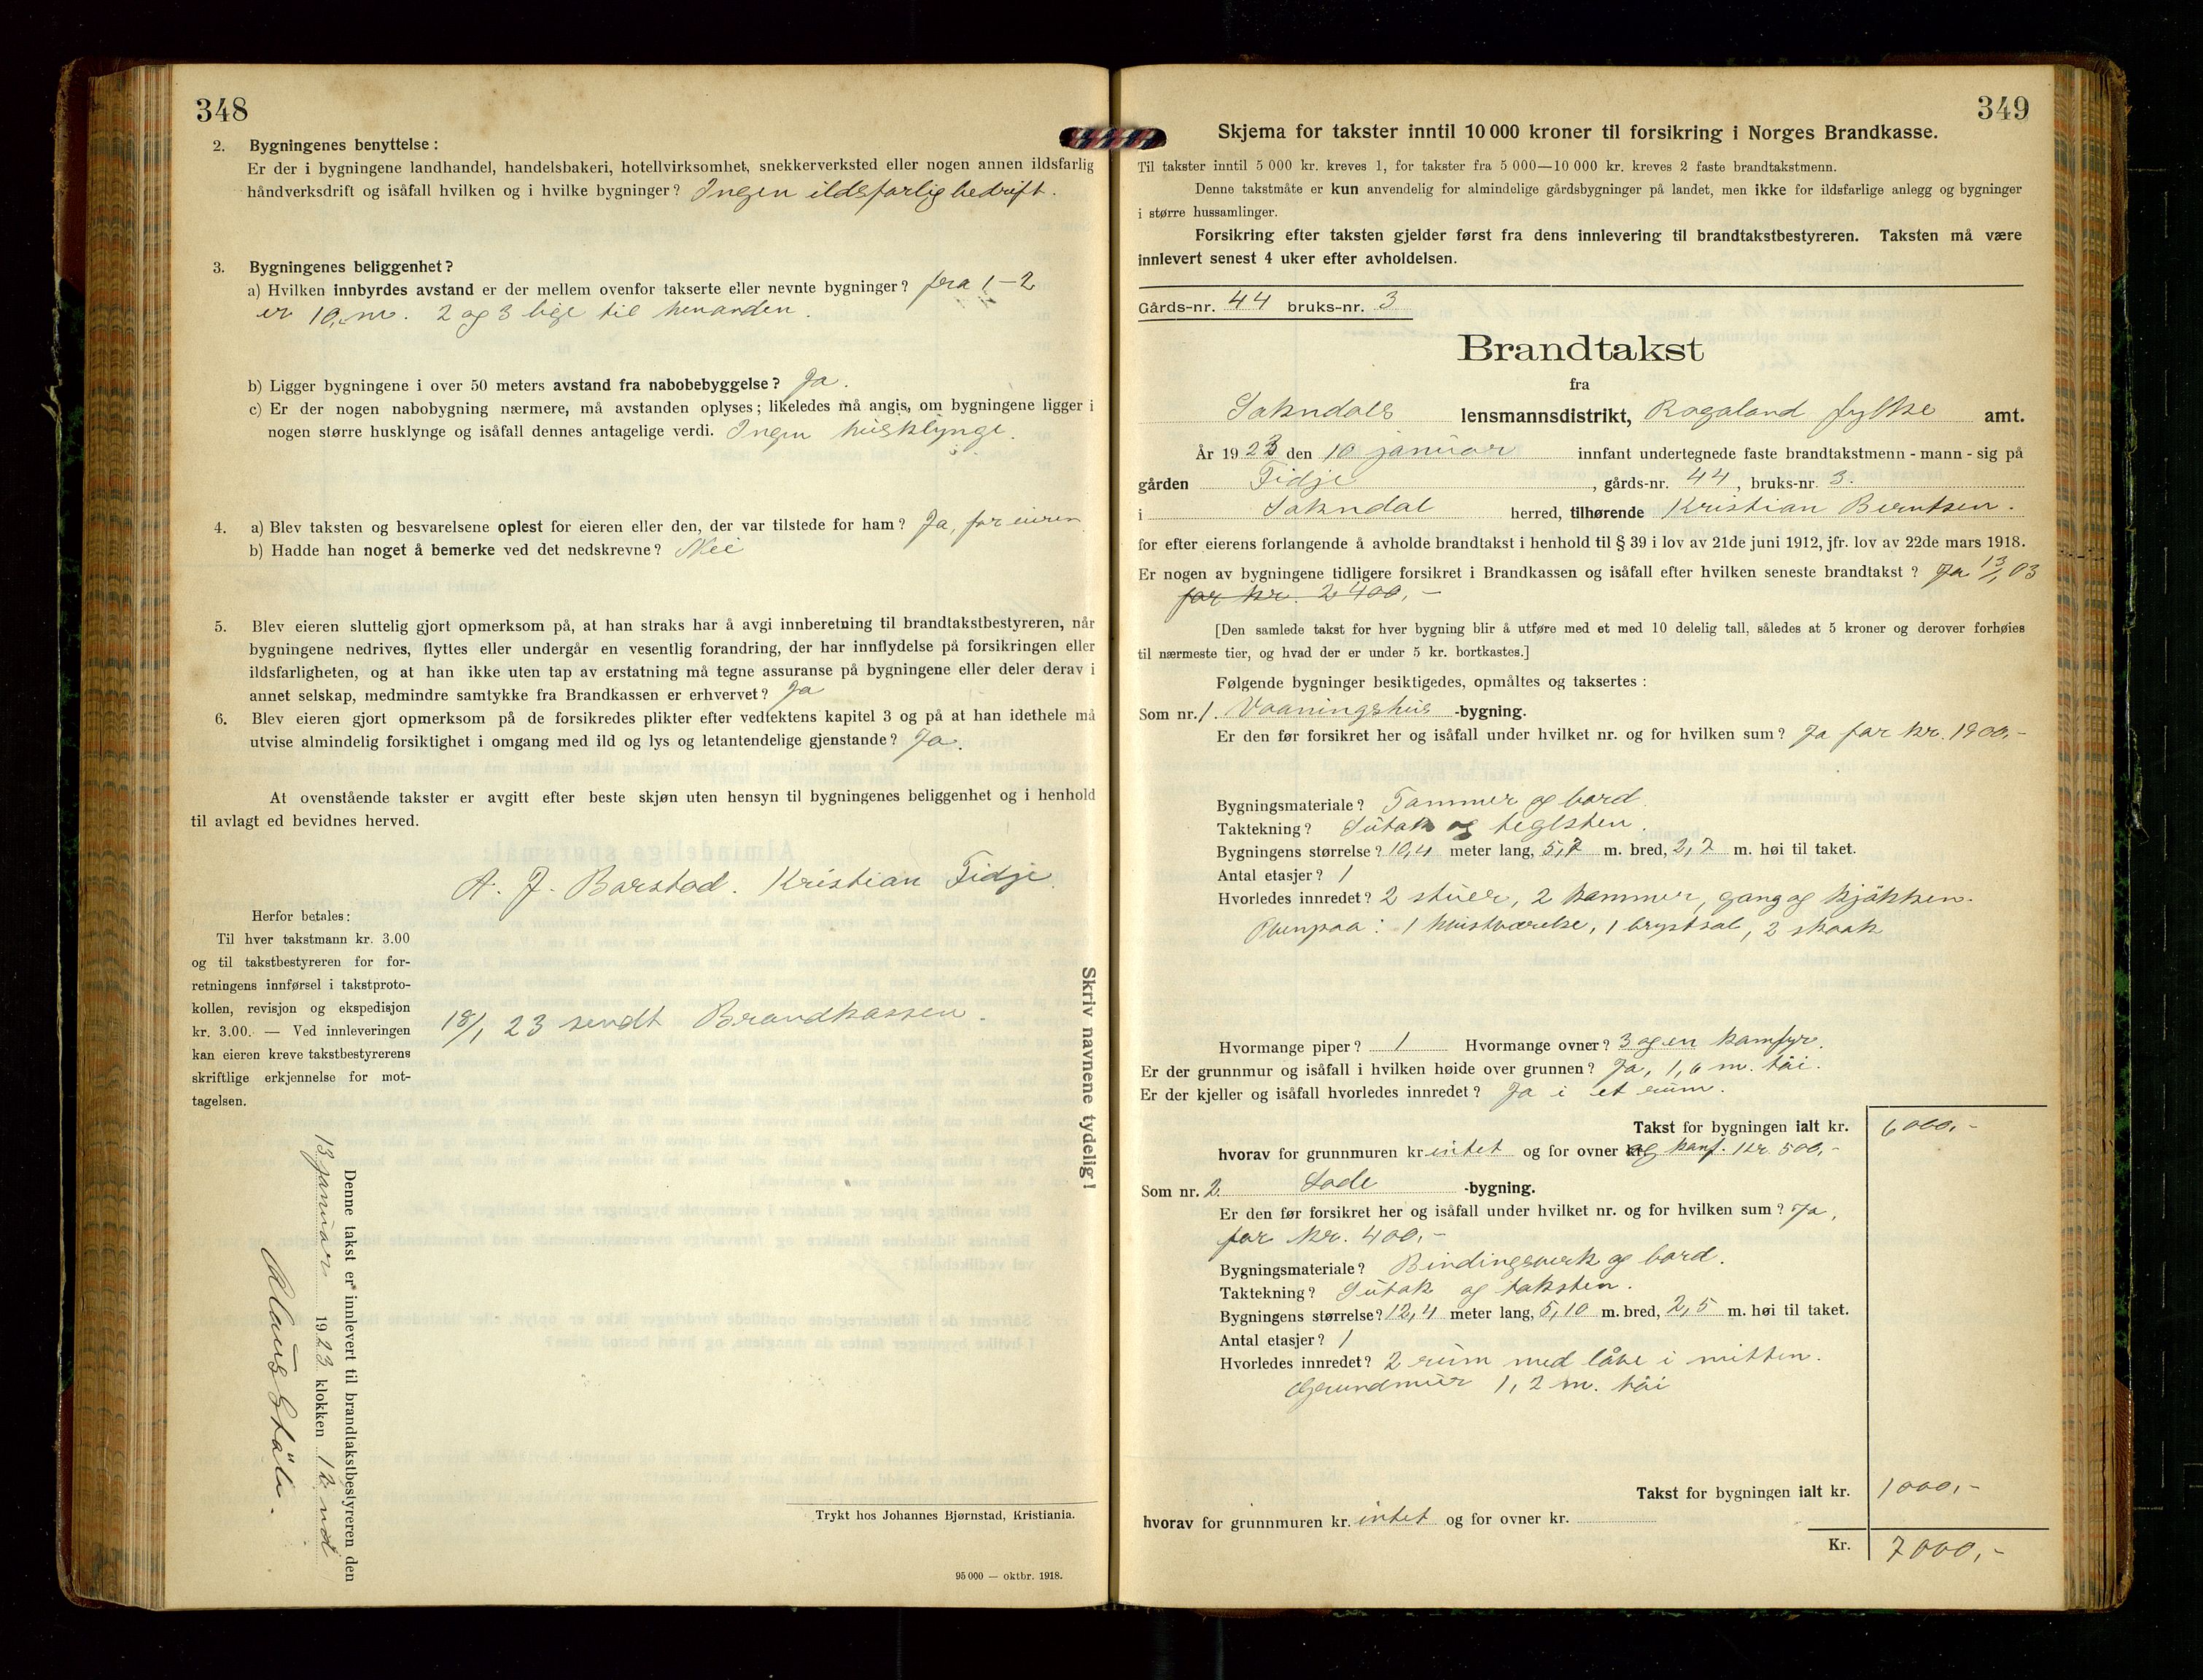 348
2. Bygningenes benyttelse :
Er der i bygningene landhandel, handelsbakeri, hotellvirksomhet, snekkerverksted eller nogen annen ildsfarlig
håndverksdrift og isåfall hvilken og i hvilke bygninger? Ingen ildsfarlig bedrift.
3. Bygningenes beliggenhet?
a) Hvilken innbyrdes avstand er der mellem ovenfor takserte eller nevnte bygninger? fra 1-2
er 10,- m. 2 og 3 lige til
b) Ligger bygningene i over 50 meters avstand fra nabobebyggelse? Ja.
c) Er der nogen nabobygning nærmere, må avstanden oplyses; likeledes må angis, om bygningene ligger i
nogen større husklynge og isåfall dennes antagelige verdi. Ingen husklynge.
4. a) Blev taksten og besvarelsene oplest for eieren eller den, der var tilstede for ham? Ja, for eieren
b) Hadde han noget å bemerke ved det nedskrevne? Nei
5. Blev eieren sluttelig gjort opmerksom på, at han straks har å avgi innberetning til brandtakstbestyreren, når
bygningene nedrives, flyttes eller undergår en vesentlig forandring, der har innflydelse på forsikringen eller
ildsfarligheten, og at han ikke uten tap av erstatning må tegne assuranse på bygningene eller deler derav i
annet selskap, medmindre samtykke fra Brandkassen er erhvervet? Ja
6. Blev eieren gjort opmerksom på de forsikredes plikter efter vedtektens kapitel 3 og på at han idethele må
utvise almindelig forsiktighet i omgang med ild og lys og letantendelige gjenstande? Ja.
At ovenstående takster er avgitt efter beste skjøn uten hensyn til bygningenes beliggenhet og i henhold
til avlagt ed bevidnes herved.
A. J. Barstad. Kristian Fidje.
Herfor betales:
Til hver takstmann kr. 3.00
og til takstbestyreren for for-
retningens innførsel i takstproto-
kollen, revisjon og ekspedisjon
kr. 3.00. — Ved innleveringen
kan eieren kreve takstbestyrerens
skriftlige erkjennelse for mot-
tagelsen.
18/1 23 sendt Brandkassen.
Skriv navnene tydelig!
Denne takst er innlevert til brandtakstbestyreren den
13 januar 1923 klokken 12 md
Claus Ståle.
Trykt hos Johannes Bjørnstad, Kristiania.
95 000 — oktbr. 1918.
349
Skjema for takster inntil 10 000 kroner til forsikring i Norges Brandkasse.
Til takster inntil 5 000 kr. kreves 1, for takster fra 5 000—10 000 kr. kreves 2 faste brandtakstmenn.
Denne takstmåte er kun anvendelig for almindelige gårdsbygninger på landet, men ikke for ildsfarlige anlegg og bygninger
i større hussamlinger.
Forsikring efter taksten gjelder først fra dens innlevering til brandtakstbestyreren. Taksten må være
innlevert senest 4 uker efter avholdelsen.
Gårds-nr. 44 bruks-nr. 3
Brandtakst
fra
Sokndals lensmannsdistrikt, Rogaland fylke amt.
År 1923 den 10 januar innfant undertegnede faste brandtakstmenn - mann - sig på
gården Fidje, gårds-nr. 44, bruks-nr. 3.
i Sokndal herred, tilhørende Kristian Berntsen.
for efter eierens forlangende å avholde brandtakst i henhold til § 39 i lov av 21de juni 1912, jfr. lov av 22de mars 1918.
Er nogen av bygningene tidligere forsikret i Brandkassen og isåfall efter hvilken seneste brandtakst ? Ja 13/1 03
for kr. 2400,-
[Den samlede takst for hver bygning blir å utføre med et med 10 delelig tall, således at 5 kroner og derover forhøies
til nærmeste tier, og hvad der er under 5 kr. bortkastes.]
Følgende bygninger besiktigedes, opmåltes og taksertes :
Som nr. 1. Vaaningshus -bygning.
Er den før forsikret her og isåfall under hvilket nr. og for hvilken sum? Ja for kr. 1900,-
Bygningsmateriale? Tømmer og bord.
Taktekning? Sutak og teglsten.
Bygningens størrelse? 10,4 meter lang, 5,7 m. bred, 2,7 m. høi til taket.
Antal etasjer? 1
Hvorledes innredet? 2 stuer, 2 kammer, gang og kjøkken.
Ovenpaa: 1 kvistværelse, 1 brystsal, 2 skaak
Hvormange piper? 1 Hvormange ovner? 3 og en komfyr.
Er der grunnmur og isåfall i hvilken høide over grunnen? Ja, 1,6 m. høi.
Er der kjeller og isåfall hvorledes innredet? Ja i et rum.
Takst for bygningen ialt kr. 6000,-
hvorav for grunnmuren kr intet og for ovner og komf. kr. 500,-
Som nr. 2. Lade -bygning.
Er den før forsikret her og isåfall under hvilket nr. og for hvilken sum? Ja,
for kr. 400,-
Bygningsmateriale? Bindingsverk og bord.
Taktekning? Sutak og taksten.
Bygningens størrelse? 12,4 meter lang, 5,10 m. bred, 2,5 m. høi til taket.
Antal etasjer? 1
Hvorledes innredet? 2 rum med låve i mitten.
Grundmur 1,2 m. høi
Takst for bygningen ialt kr. 1000,-
hvorav for grunnmuren kr. intet og for ovner kr.
Kr. 7000,-